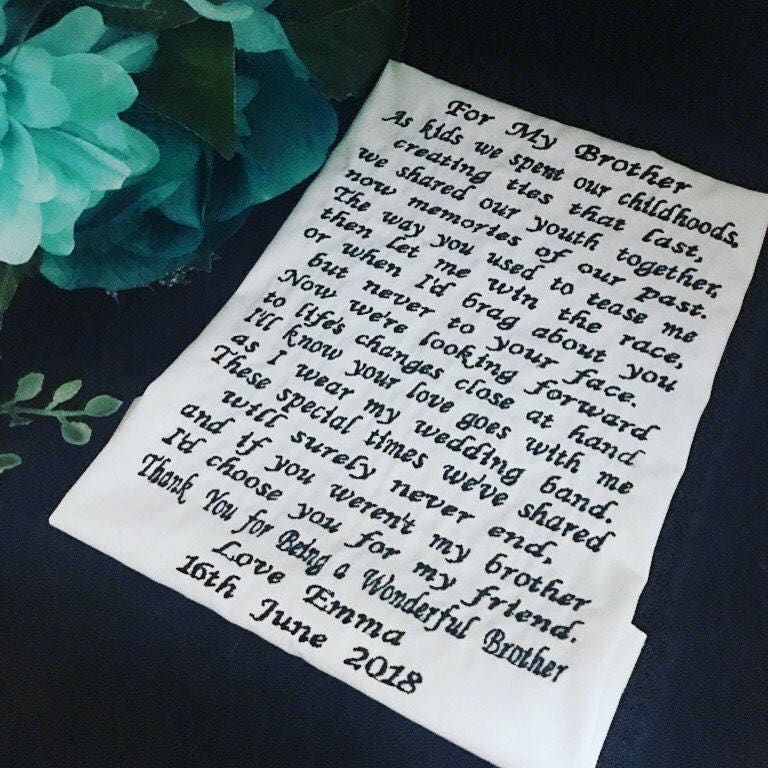 For My Brother
As kids we spent our childhoods,
creating ties that last,
we shared our youth together,
now memories of our past.
The way you used to tease me
then let me win the race,
or when I'd brag about you
but never to your face.
Now we're looking forward
to life's changes close at hand
I'll know your love goes with me
as I wear my wedding band.
These special times we've shared
will surely never end,
and if you weren't my brother
I'd choose you for my friend.
Thank You for Being a Wonderful Brother
Love Emma
16th June 2018